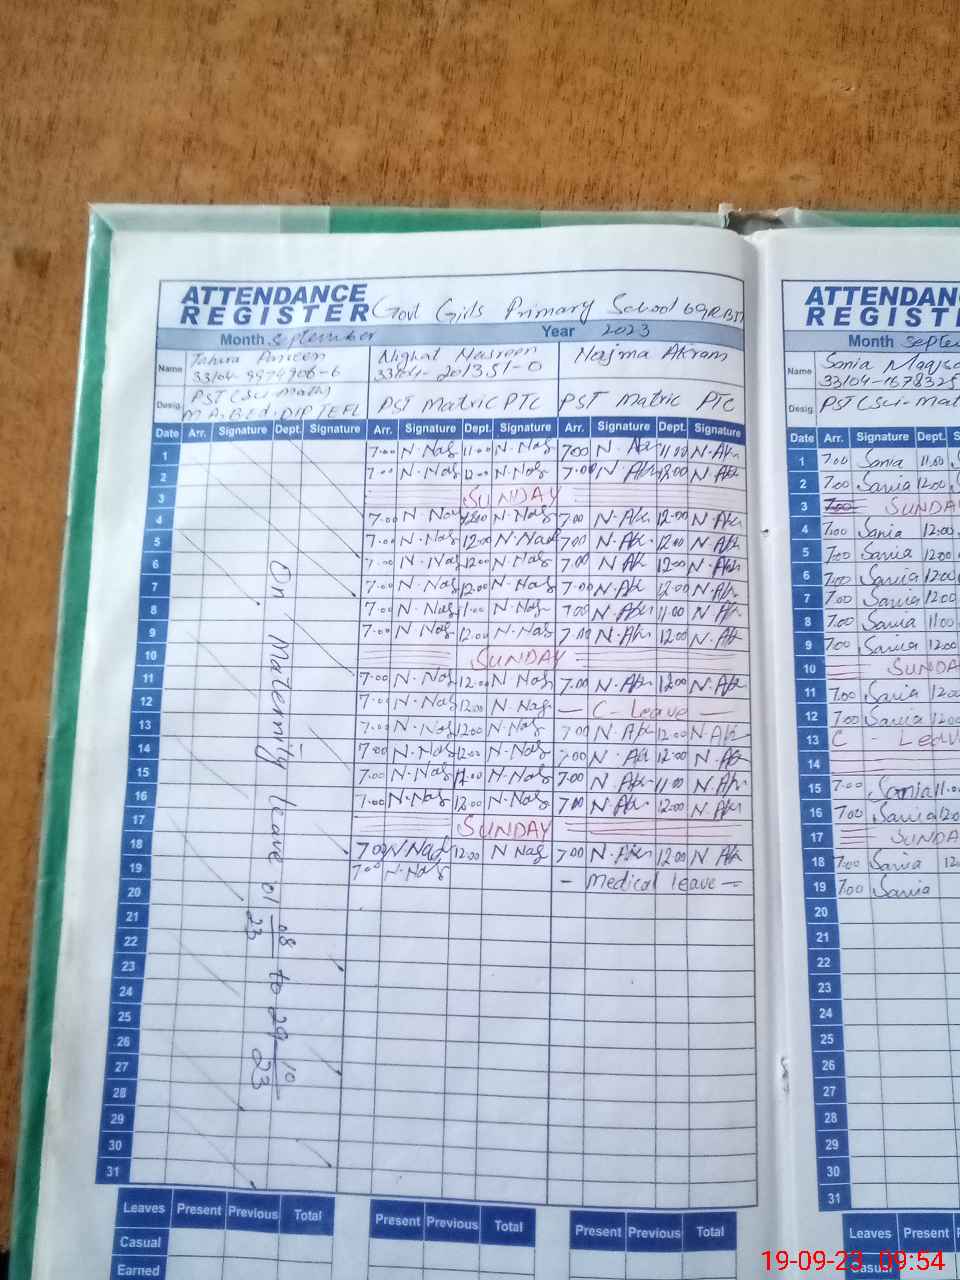 ATTENDANCE REGISTER Govt Girls Primary School 69RB
Month September Year 2023
Name Tahira Parveen Nighat Nasreen Najma Akram
33104-9974906-6 33104-201351-0
Desig. PST (Sci-Math) PST Matric PTC PST Matric PTC
M.A.B.Ed. DIP TEFL
Date Arr. Signature Dept. Signature Arr. Signature Dept. Signature Arr. Signature Dept. Signature
1 7.00 N-Nas 11.00 N-Nas 7.00 N-Akr 11.00 N-Akr
2 7.00 N-Nas 12.00 N-Nas 7.00 N-Akr 12.00 N-Akr
3 SUNDAY
4 7.00 N-Nas 12.00 N-Nas 7.00 N-Akr 12.00 N-Akr
5 7.00 N-Nas 12.00 N-Nas 7.00 N-Akr 12.00 N-Akr
6 7.00 N-Nas 12.00 N-Nas 7.00 N-Akr 12.00 N-Akr
7 7.00 N-Nas 12.00 N-Nas 7.00 N-Akr 12.00 N-Akr
8 7.00 N-Nas 11.00 N-Nas 7.00 N-Akr 11.00 N-Akr
9 7.00 N-Nas 12.00 N-Nas 7.00 N-Akr 12.00 N-Akr
10 SUNDAY
11 7.00 N-Nas 12.00 N-Nas 7.00 N-Akr 12.00 N-Akr
12 7.00 N-Nas 12.00 N-Nas — C-Leave —
13 7.00 N-Nas 12.00 N-Nas 7.00 N-Akr 12.00 N-Akr
14 7.00 N-Nas 12.00 N-Nas 7.00 N-Akr 12.00 N-Akr
15 7.00 N-Nas 11.00 N-Nas 7.00 N-Akr 11.00 N-Akr
16 7.00 N-Nas 12.00 N-Nas 7.00 N-Akr 12.00 N-Akr
17 SUNDAY
18 7.00 N Nas 12.00 N Nas 7.00 N-Akr 12.00 N Akr
19 7.00 N-Nas — Medical leave —
20
21
22
23
24
25
26
27
28
29
30
31
On Maternity leave 01 08/23 to 29 10/23
Leaves Present Previous Total Present Previous Total Present Previous Total
Casual
Earned
ATTENDAN
REGIST
Month Septe
Name Sania Maqs
33104-1678325
Desig. PST (Sci-Mat
Date Arr. Signature Dept. S
1 7.00 Sania 11.00
2 7.00 Sania 12.00
3 7.00 SUNDA
4 7.00 Sania 12.00
5 7.00 Sania 12.00
6 7.00 Sania 12.00
7 7.00 Sania 12.00
8 7.00 Sania 11.00
9 7.00 Sania 12.00
10 SUNDA
11 7.00 Sania 12.0
12 7.00 Sania 12.00
13 C - Leav
14
15 7.00 Sania 11.0
16 7.00 Sania 12.0
17 SUNDA
18 7.00 Sania 12
19 7.00 Sania
20
21
22
23
24
25
26
27
28
29
30
31
Leaves Present P
Casual
19-09-23 09:54